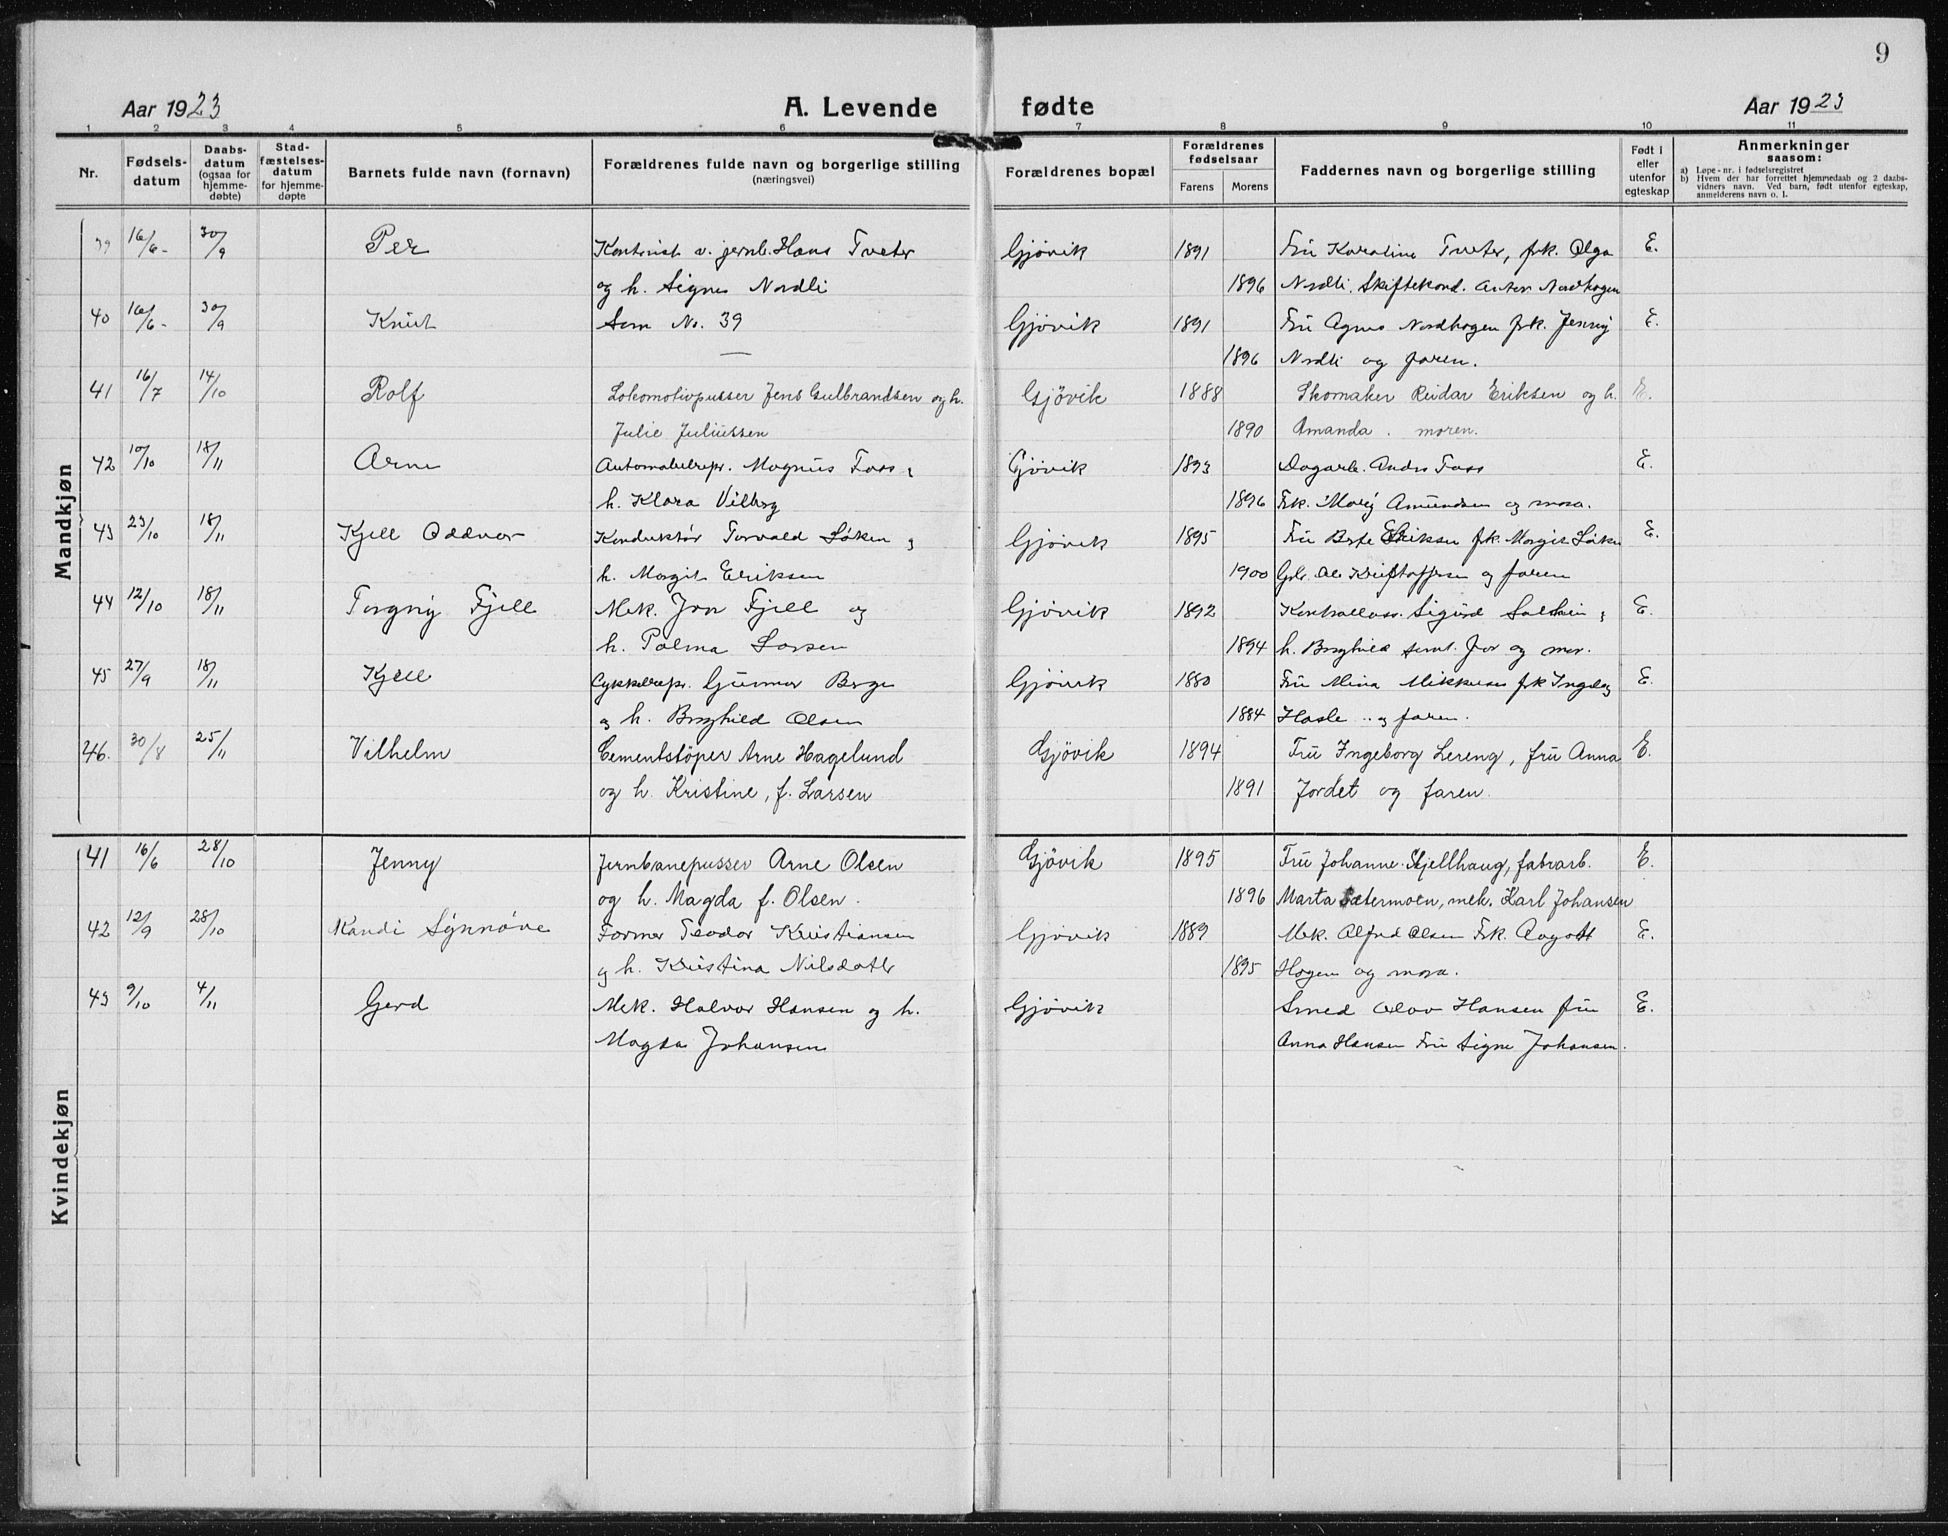 9
Aar 1923 A. Levende fødte Aar 1923
1 2 3 4 5 6 7 8 9 10 11
Nr. Fødsels-datum Daabs-datum (ogsaa for hjemme-døbte) Stad-fæstelses-datum for hjemme-døpte Barnets fulde navn (fornavn) Forældrenes fulde navn og borgerlige stilling (næringsvei) Forældrenes bopæl Forældrenes fødselsaar Farens Morens Faddernes navn og borgerlige stilling Født i eller utenfor egteskap Anmerkninger saasom:
a) Løpe-nr. i fødselsregistret
b) Hvem der har forrettet hjemmedaab og 2 daabs-vidners navn. Ved barn, født utenfor egteskap, anmelderens navn o. l.
Mandkjøn
39 16/6- 30/9 Per Kontorist v. jernb. Hans Tveter Gjøvik 1891 Fru Karoline Tveter, frk. Olga E.
og h. Signe Nordli 1896 Nordli. Skiftekond. Anton Nordhagen
40 16/6- 30/9 Knut Som No. 39 Gjøvik 1891 Fru Agnes Nordhagen frk. Jenny E.
1896 Nordli og faren.
41 16/7 14/10 Rolf Lokomotivpusser Jens Gulbrandsen og h. Gjøvik 1888 Skomaker Reidar Eriksen og h. E.
Julie Juliussen 1890 Amanda. moren.
42 10/10 18/11 Arne Automobilrepr. Magnus Foss & Gjøvik 1893 Dagarb. Anders Foss E.
h. Klara Vilberg 1896 Frk. Marij Amundsen og mora.
43 23/10 18/11 Kjell Oddvar Konduktør Torvald Løken & Gjøvik 1895 Fru Berte Eriksen frk. Margit Løken E.
h. Margit Eriksen 1900 Ole Kristoffersen og faren
44 12/10 18/11 Torgny Fjell Mek. Jon Fjell og Gjøvik 1892 Sigurd & E.
h. Palma Larsen 1894 h. Borghild samt far og mor.
45 27/9 18/11 Kjell Cykkelrepr. Gunnar Berge Gjøvik 1880 Fru Mina Mikkelsen frk Ingeborg E.
og h. Borghild Olsen 1884 Hasle og faren.
46. 30/8 25/11 Vilhelm Cementstøper Arne Hagelund Gjøvik 1894 Fru Ingeborg Lereng, fru Anna E.
og h. Kristine, f. Larsen 1891 Jordet og faren.
Kvindekjøn
41 16/6 28/10 Jenny Jernbanepusser Arne Olsen Gjøvik 1895 Fru Johanne Skjellhaug, fabrarb. E.
og h. Magda f. Olsen. 1896 Marta Sætermoen, mek. Karl Johansen
42 12/9 28/10 Randi Synnøve Former Teodor Kristiansen Gjøvik 1889 Mek. Alfred Olsen Frk. Aagot E.
og h. Kristina Nilsdatter 1895 Hagen og mora.
43 9/10 4/11 Gerd Mek. Halvor Hansen og h. Gjøvik Smed Olav Hansen fru E.
Magda Johansen Anna Hansen Fru Signe Johansen.